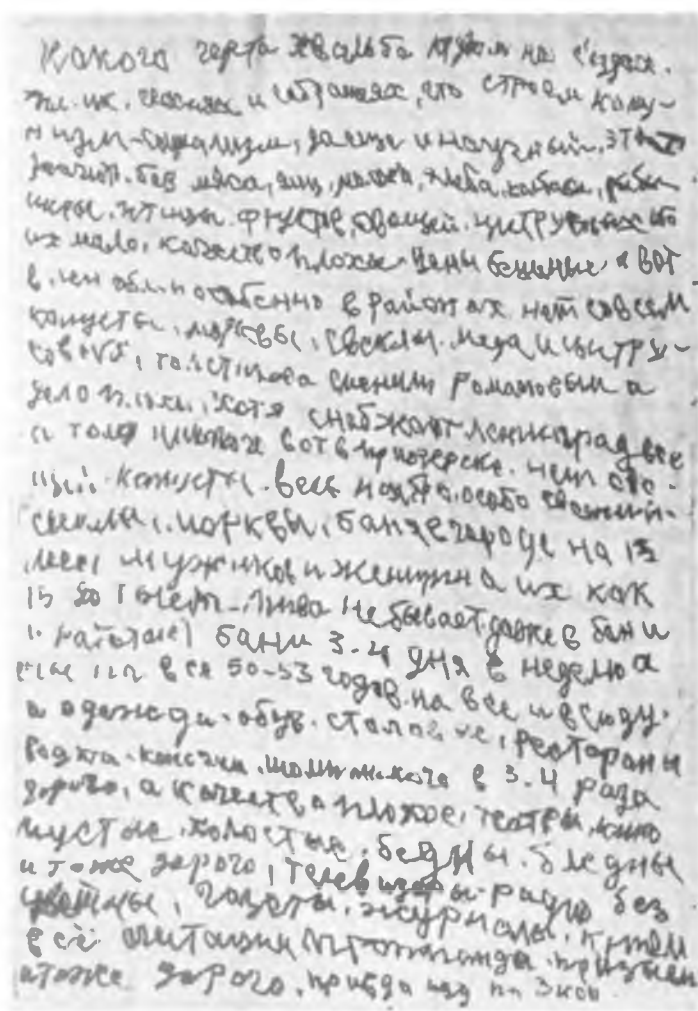 Какого черта хвальба кругом на с'ездах.
и собраниях, что строем комму-
низм-социализм, да еще и научный. это
значит. без мяса, яиц, молока, хлеба, колбасы, рыбы
птицы. овощей. цитрусовых ибо
их мало. качество плохое цены бешеные. а вот
в лен обл. и особенно в районах нет совсем
капусты. морковы. свеклы. меда и цитру-
совых, толстикова сменили Романовым а
дело плохо. хотя снабжают ленинград все
а толку никаких вот в приозерске. нет ово-
щей. капусты. весь ноябрь. особо свежий.
свеклы. моркви. баня в городе на 15
мест мужиков и женщин а их как
15 20 тысяч пива не бывает даже в бани
работает бани 3-4 дня в неделю а
в ея 50-53 годов. на все и всюду.
а одежда. обув. столовые, рестораны
водка. коньяки. в 3-4 раза
дорого, а качество плохое, театры, кино
пустые. холостые. бедны. бледны
и тоже дорого, телевизоры радио без
цветны, газеты. журналы. кругом
все пропаганда.
а тоже дорого. правда